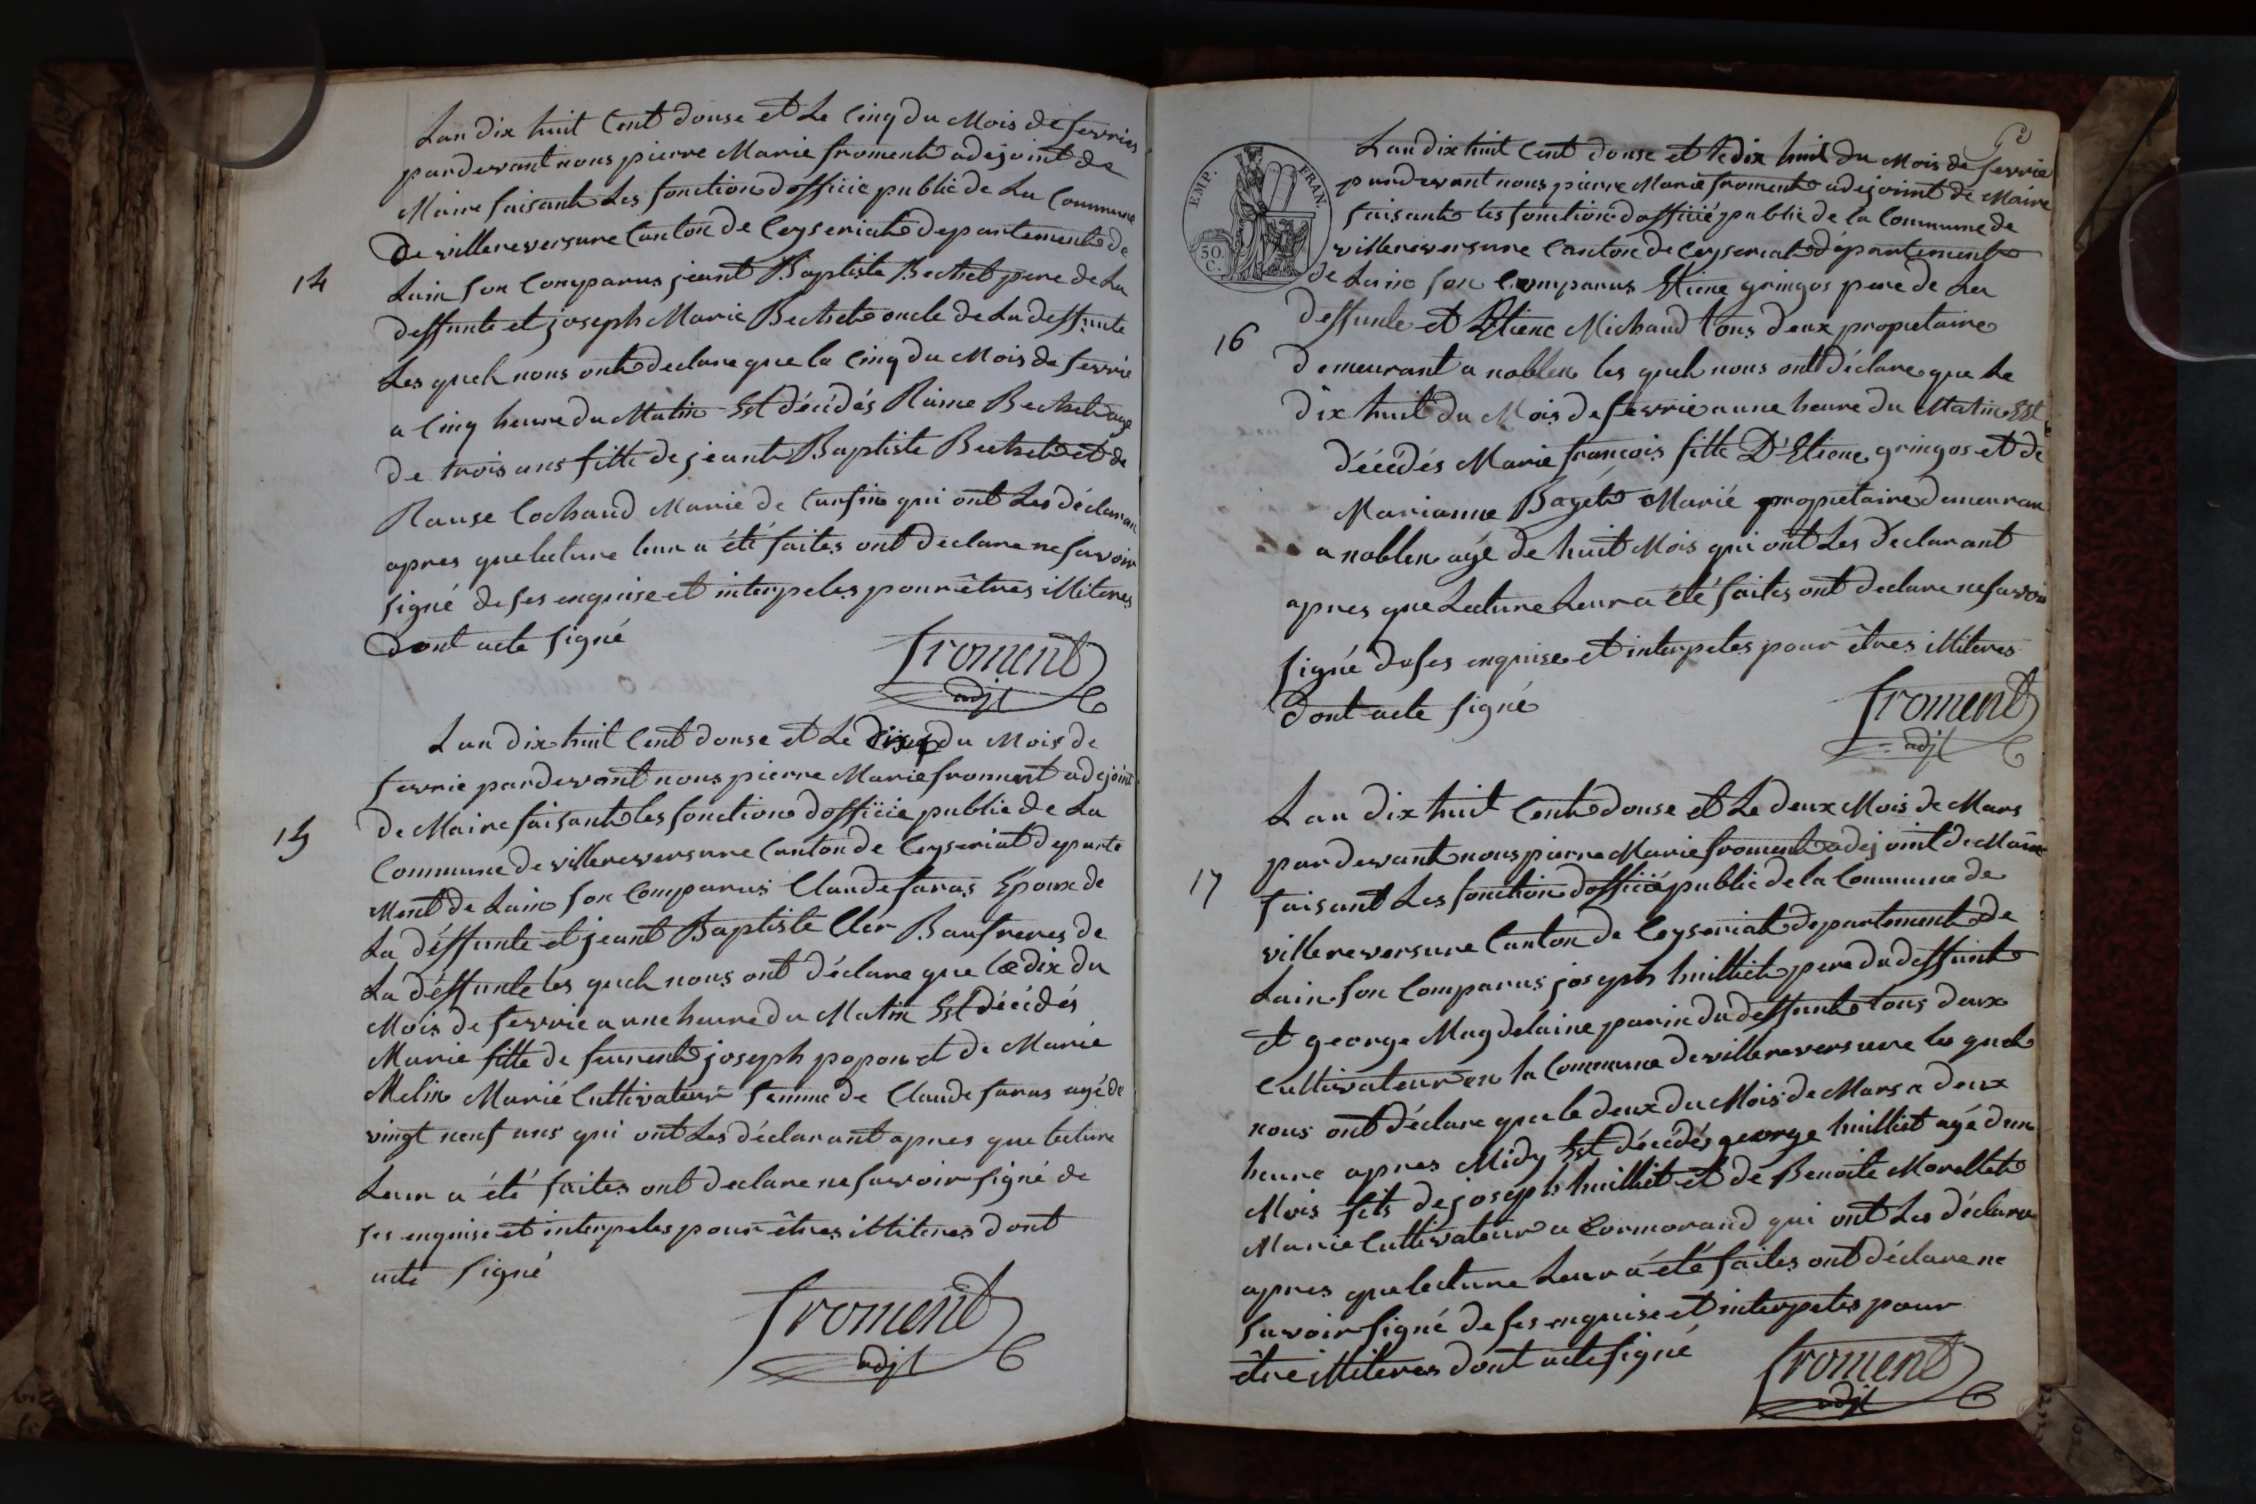 Lan dix huit Cent douse et Le Cinq du Mois de fevrier
pardevant nous pierre Marie froment adejoint de
Maire faisant Les fonction dofficie public de La Commune
De villereversure Canton de Ceyseriat departement de
14
Lain son Comparus jeant Baptiste Bechet pere de La
deffunte et joseph Marie Bechet oncle de La deffunte
Les quel nous ont declare que la Cinq du Mois de fevrie
a Cinq heure du Matin Est décédés Bechet age
de trois ans fille de jeant Baptiste Bechet et de
Rause Cochaud Marie de qui ont Les déclaran
apres que lecture leur a été faites ont declare ne savoir
signé de ses enquise et interpeles pour êtres illiteres
Dont acte signé
froment
adjt
Lan dix huit Cent douse et Le dix du Mois de
fevrie pardevant nous pierre Marie froment adejoint
15
de Maire faisant les fonction dofficie public de La
Commune de villereversure Canton de Ceyseriat departe
Ment de Lain son Comparus Claude faras Epoux de
La déffunte et jeant Baptiste Cler Baufreres de
La déffunte les quel nous ont déclare que le dix du
Mois de fevrie a une heure du Matin Est décédés
Marie fille de joseph popon et de Marie
Melin Marié Cultivateur femme de Claude faras agé de
vingt neuf ans qui ont Les déclarant apres que lecture
Leur a été faites ont declare ne savoir signé de
ses enquise et interpeles pour êtres illiteres dont
acte signé
froment
adjt
EMP. FRAN
50.
C.
Lan dix huit Cent douse et le dix huit du Mois de fevrie
pardevant nous pierre Marie froment adejoint de Maire
faisant les fonction dofficié public de la Commune de
villereversure Canton de Ceyseriat département
de Lain son Comparus Etiene gringos pere de La
16
deffunte et Etiene Michaud tous deux propietaire
demeurant a noblen les quel nous ont déclare que Le
dix huit du Mois de fevrie a une heure du Matin Est
décédés Marie francois fille D'Etiene gringos et de
Marianne Bayet Marié propietaire demeuran
a noblen agé de huit Mois qui ont Les declarant
apres que Lecture Leur a été faites ont declare ne savoir
signé de ses enquise et interpeles pour êtres illiteres
Dont acte signé
froment
adjt
Lan dix huit Cent douse et Le deux Mois de Mars
pardevant nous pierre Marie froment adejoint de Maire
17
faisant Les fonction dofficié public de la Commune de
villereversure Canton de Ceyseriat departement de
Lain son Comparus joseph huilliet pere du deffunt
et george Magdelaine parin du deffunt tous deux
Cultivateur en la Commune de villereversure les quel
nous ont déclare que le deux du Mois de Mars a deux
heure apres Midy Est décédés george huilliet agé d'un
Mois fils de joseph huilliet et de Benoite Morellet
Marie Cultivateur a Cormorand qui ont Les déclara
apres que lecture Leur a été faites ont déclare ne
savoir signé de ses enquise et interpeles pour
être illiteres dont acte signé
froment
adjt